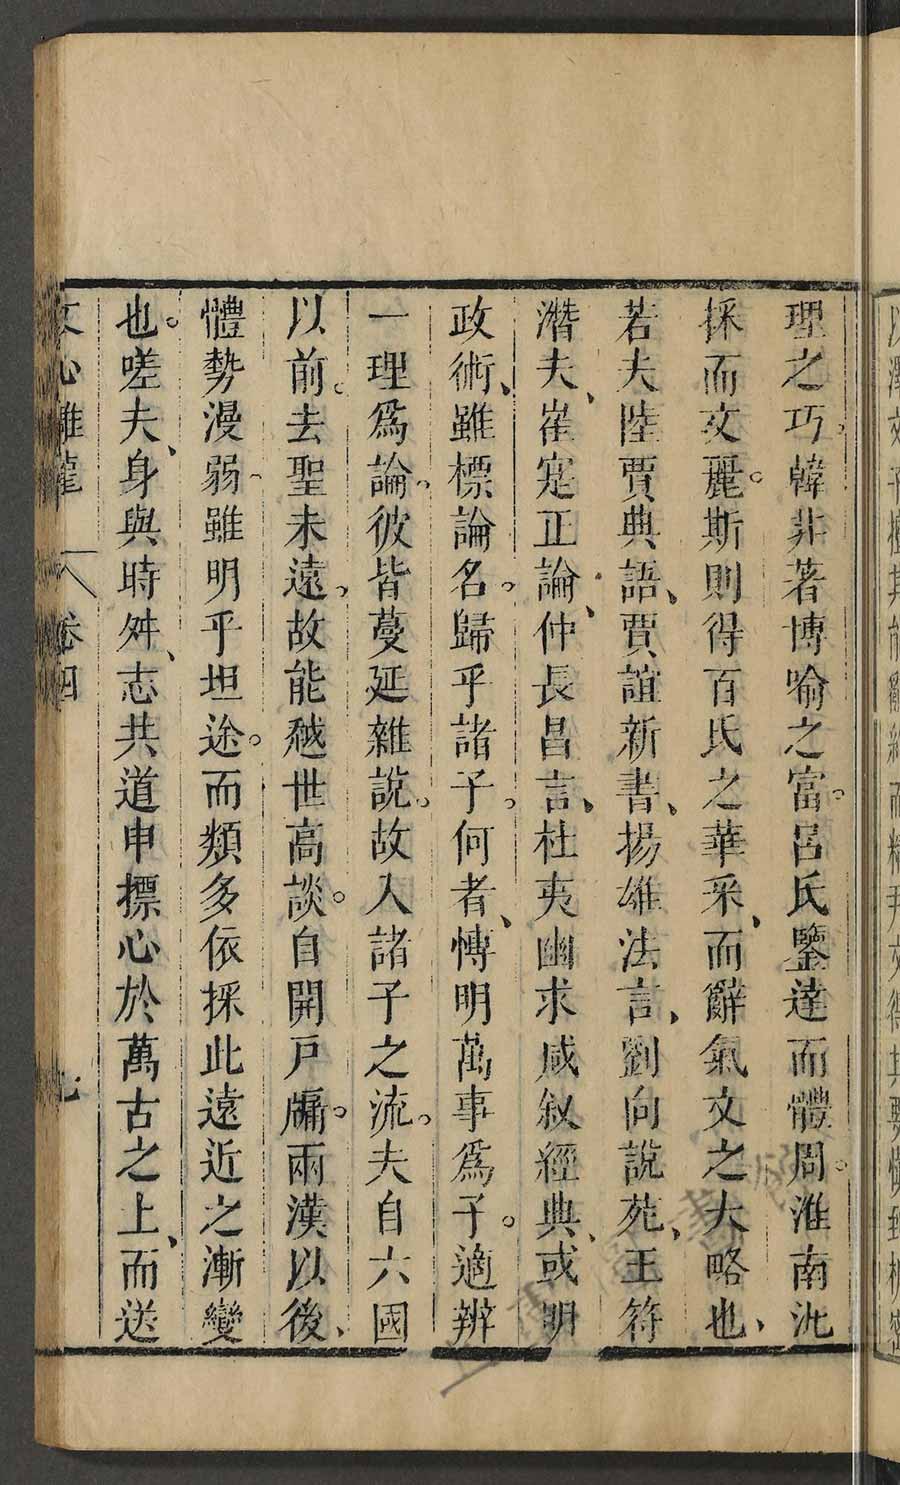 理之巧。韓非著博喻之富。呂氏鑒遠而體周。淮南汎
採而文麗。斯則得百氏之華采、而辭氣文之大略也、
若夫陸賈典語、賈誼新書、揚雄法言、劉向說苑、王符
潛夫、崔寔正論、仲長昌言、杜夷幽求咸叙經典、或明
政術、雖標論名。歸乎諸子。何者、博明萬事爲子。適辨
一理爲論。彼皆蔓延雜說。故入諸子之流。夫自六國
以前。去聖未遠。故能越世高談。自開戸牖。兩漢以後、
體勢漫弱。雖明乎坦途。而類多依採此遠近之漸變
也。嗟夫、身與時舛、志共道申摽心於萬古之上、而送
文心雕龍 卷四 七